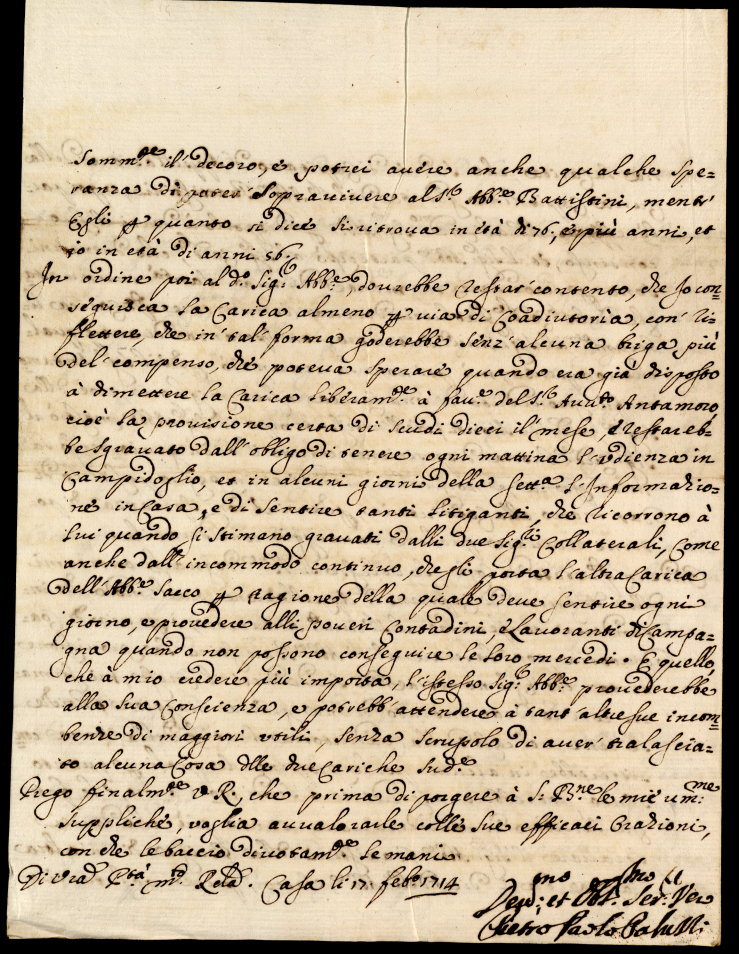 Somm.te il decoro, e potrei avere anche qualche spe=
ranza di poter sopravivere al S.r Abb.e Battistini, mentr'
Egli p quanto si dice si ritrova in età di 76, e più anni, et
io in età di anni 56.
In ordine poi al d.o Sig.r Abb.e, dovrebbe restar contento, che Io con=
seguisca la Carica almeno p via di Coadiutoria, con ri=
flettere, che in tal forma goderebbe senz'alcuna briga più
del compenso, che poteva sperare quando era già disposto
à dimettere la Carica liberam.te à fav.e del S.r Avv.to Antamoro,
cioè la provisione certa di scudi dieci il mese, e restareb=
be sgravato dall'obligo di tenere ogni mattina l'udienza in
Campidoglio, et in alcuni giorni della sett.a l'Informazio=
ne in Casa, e di sentire tanti litiganti, che ricorrono à
lui quando si stimano gravati dalli due Sig.ri Collaterali, Come
anche dall'incommodo continuo, che gli porta l'altra Carica
dell'Abb.e Sacco p ragione della quale deve sentire ogni
giorno, e provedere alli poveri Contadini, e Lavoranti di Campa=
gna quando non possono conseguire le loro mercedi. E quello,
che à mio credere più importa, l'istesso Sig.r Abb.e provederebbe
alla sua Conscienza, e potrebb'attendere à tant'altre sue incom=
benze di maggiori utili, senza scrupolo di aver tralascia=
to alcuna Cosa dlle due Cariche sud.e
Prego finalm.te V.R., che prima di porgere à S. B.ne le mie um.me
suppliche, voglia avvalorarle colle sue efficaci Orazioni,
con che le baccio divotam.te le mani.
Di V.ra P.tà m.to Rev.da Casa li 17 feb.o 1714
Dev.mo et Obl.mo Ser.
Pietro Paolo